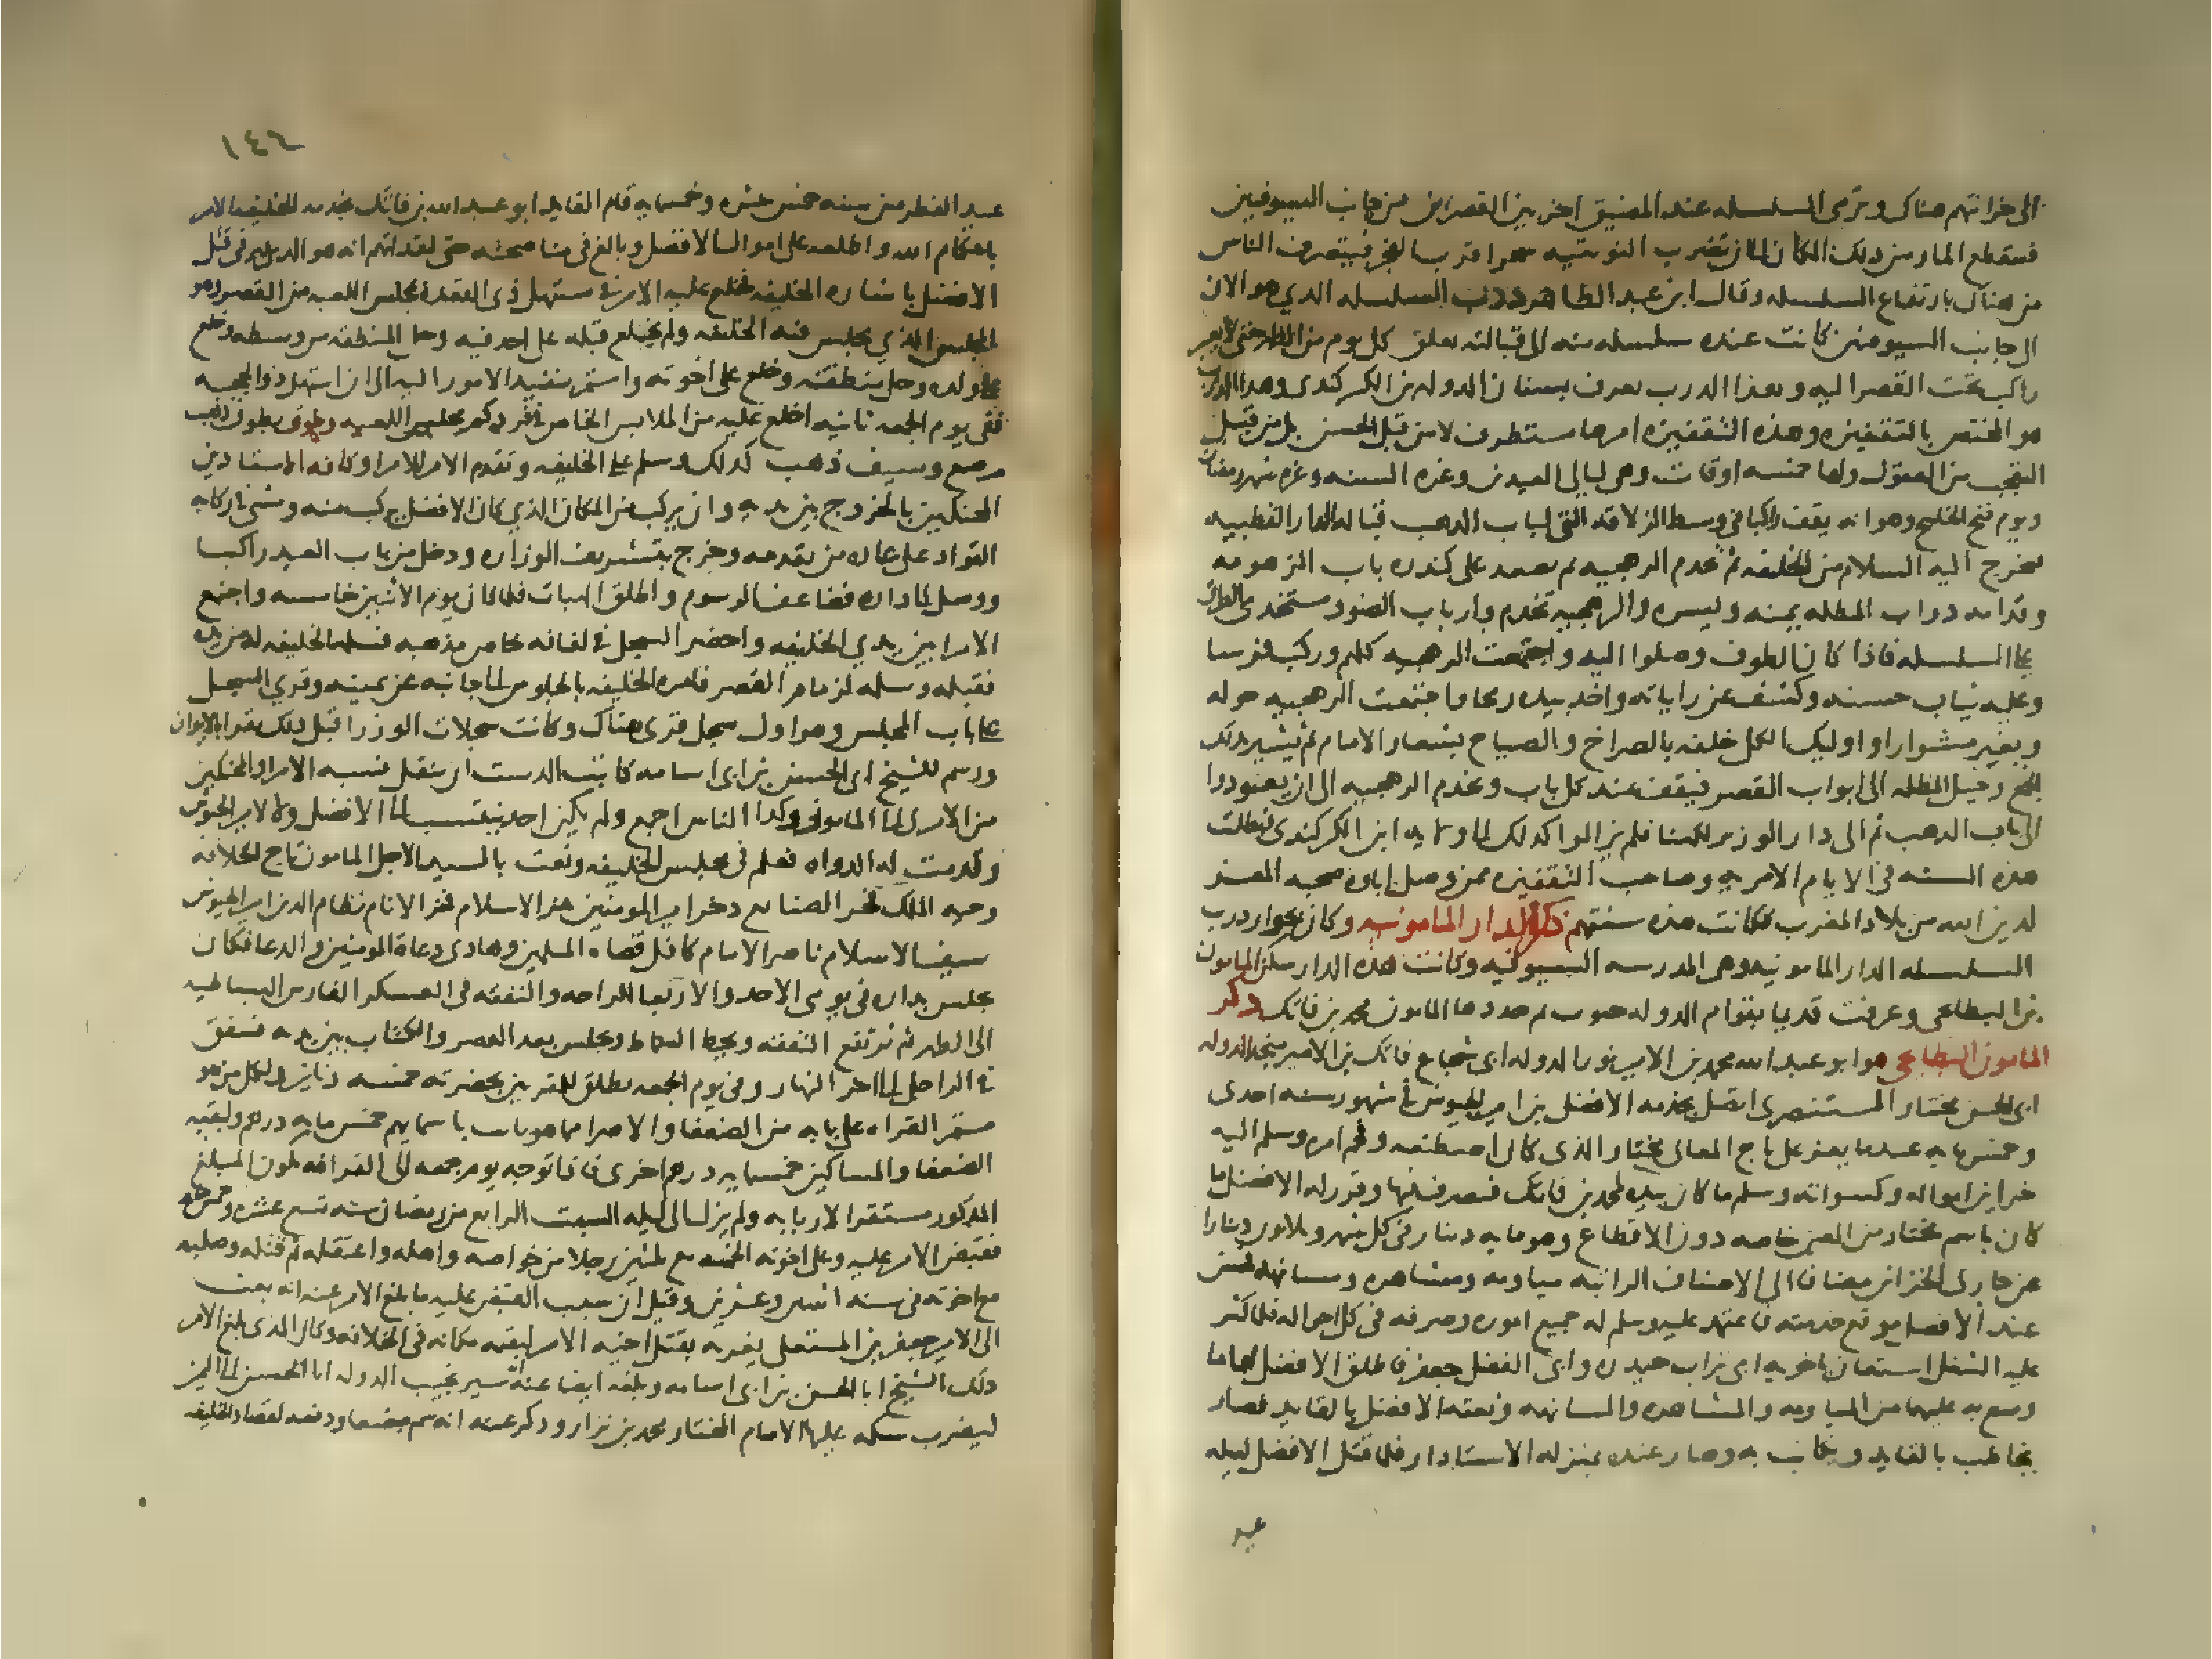 الى خزانتهم هناك وترمى السلسله عند المضيق اخر بين القصرين من جانب السيوفيين
فينقطع المار من ذلك المكان الى ان تضرب النوبتيه سحرا قرب الفجر فينصرف الناس
من هناك بارتفاع السلسله وقال ابن عبد الظاهر درب السلسله الذي هو الان
الى جانب السيوفيين كانت عنده سلسله منه الى قبالته تعلق كل يوم من الظهر حتى لا يعبر
راكب تحت القصر اليه وهذا الدرب يعرف بسنان الدوله بن الكركندى وهذا الدرب
هو المختص بالتقفيزه وهذه التقفيزه امرها مستظرف لا من قبل الحسن بل من قبل
التعجب من العقول ولها خمسه اوقات وهى ليالى العيدين وغره السنه وغره شهر رمضان
ويوم فتح الخليج وهو انه يقف راكبا فى وسط الزلاقه التى لباب الذهب قباله الدار القطبيه
فيخرج اليه السلام من الخليفه ثم تخدم الرهجيه ثم يصعد على كندره باب الزهومه
وقدامه دواب المظله يمنه ويسره والرهجيه تخدم وارباب الضوء ومستخدمى الطرق
على السلسله فاذا كان الطوف وصلوا اليه واجتمعت الرهجيه كلهم وركب فرسا
وعليه ثياب حسنه وكشف عن راياته واخذ بيده رمحا واجتمعت الرهجيه حوله
ويعبر مشوارا واوليك الكل خلفه بالصراخ والصياح بشعار الامام ثم يسير بذلك
الجمع وخيل المظله الى ابواب القصر فيقف عند كل باب وتخدم الرهجيه الى ان يعودوا
الى باب الذهب ثم الى دار الوزير للهنا فلم يزالوا كذلك الى ولايه ابن الكركندى فبطلت
هذه السنه فى الايام الامريه وصاحب التقفيزه ممن وصل اباوه صحبه المعز
لدين الله من بلاد المغرب فكانت هذه سنتهم ذكر الدار المامونيه وكان بجوار درب
السلسله الدار المامونيه وهى المدرسه السيوفيه وكانت هذه الدار سكن المامون
بن البطايحى وعرفت قديما بقوام الدوله حبوب ثم جددها المامون محمد بن فاتك ذكر
المامون البطايحى هو ابو عبد الله محمد بن الامير نور الدوله ابى شجاع فاتك بن الامير منجد الدوله
ابى الحسن مختار المستنصرى اتصل بخدمه الافضل بن امير الجيوش فى شهور سنه احدى
وخمسمايه عندما تغير على تاج المعالى مختار الذى كان اصطنعه وفخم امره وسلم اليه
خزاين امواله وكسواته وسلم ما كان بيده لمحمد بن فاتك فتصرف فيها وقرر له الافضل ما
كان باسم مختار من العين خاصه دون الاقطاع وهو مايه دينار فى كل شهر وثلاثون دينارا
عن جارى الخزاين مضافا الى الاصناف الراتبه مياومه ومشاهره ومسانهه فحسن
عند الافضل موقع خدمته فاعتمد عليه وسلم له جميع اموره وصرفه فى كل احواله فلما كثر
عليه الشغل استعان باخويه ابى تراب حيدره وابى الفضل جعفر فاطلق الافضل لهما ما
وسع به عليهما من المياومه والمشاهره والمسانهه ونعته الافضل بالقايد فصار
يخاطب بالقايد ويكاتب به وصار عنده بمنزله الاستادار فلما قتل الافضل ليله
عيد
١٤٦
عيد الفطر من سنه خمس عشره وخمسمايه قام القايد ابو عبد الله بن فاتك بخدمه الخليفه الامر
باحكام الله واطلعه على اموال الافضل وبالغ فى مناصحته حتى لقد اتهم انه هو الذى دبر فى قتل
الافضل باشاره الخليفه فخلع عليه الامر فى مستهل ذى القعده بمجلس اللعبه من القصر وهو
المجلس الذي يجلس فيه الخليفه ولم يخلع قبله على احد فيه وحل المنطقه من وسطه وخلع
على ولده وحل منطقته وخلع على اخوته واستمر بتنفيد الامور اليه الى ان استهل ذو الحجه
ففى يوم الجمعه ثانيه اخلع عليه من الملابس الخاص فى فرد كم مجلس اللعبه وطوق بطوق ذهب
مرصع وسيف ذهب كذلك وسلم على الخليفه وتقدم الامر للامرا وكافه الاستادين
المحنكين بالخروج بين يديه وان يركب من المكان الذي كان الافضل يركب منه ومشى فى ركابه
القواد على عاده من تقدمه وخرج بتشريف الوزاره ودخل من باب العيد راكبا
ووصل الى داره فضاعف الرسوم واطلق الهبات فلما كان يوم الاثنين خامسه واجتمع
الامرا بين يدي الخليفه واحضر السجل فى لفافه خاص مذهبه فسلمه الخليفه له من يده
فقبله وسلمه لزمام القصر فامره الخليفه بالجلوس الى جانبه عن يمينه وقري السجل
على باب المجلس وهو اول سجل قرى هناك وكانت سجلات الوزرا قبل ذلك تقرا بالايوان
ورسم للشيخ ابى الحسن بن ابى اسامه كاتب الدست ان ينقل نسبه الامرا والمحنكين
من الامرى الى المامونى وكذا الناس اجمع ولم يكن احد ينتسب الى الافضل ولا لامير الجيوش
وقدمت له الدواه فعلم فى مجلس الخليفه ونعت بالسيد الاجل المامون تاج الخلافه
وجيه الملك فخر الصنايع ذخر امير المومنين عز الاسلام فخر الانام نظام الدين امير الجيوش
سيف الاسلام ناصر الامام كافل قضاه المسلمين وهادى دعاه المومنين والدعا فكان
يجلس بداره فى يومى الاحد والاربعا للراحه والنفقه فى العسكر الفارس البساطيه
الى الظهر ثم ترتفع النفقه ويحط السماط ويجلس بعد العصر والكتاب بين يديه فينفق
فى الراجل الى اخر النهار وفى يوم الجمعه يطلق للمقربين بحضرته خمسه دنانير ولكل من هو
مستمر القراه على بابه من الضعفا والاجرا مما هو ثابت باسمايهم خمس مايه درهم ولبقيه
الضعفا والمساكين خمسمايه درهم اخرى فاذا توجه يوم جمعه الى القرافه يكون المبلغ
المذكور مستقرا لاربابه ولم يزل الى ليله السبت الرابع من رمضان سنه تسع عشره وخمسمايه
فقبض الامر عليه وعلى اخوته الخمسه مع ثلثين رجلا من خواصه واهله واعتقله ثم قتله وصلبه
مع اخوته فى سنه اثنين وعشرين وقيل ان سبب القبض عليه ما بلغ الامر عنه انه بعث
الى الامير جعفر بن المستعلى يغريه بقتل اخيه الامر ليقيمه مكانه فى الخلافه وكان الذى بلغ الامر
ذلك الشيخ ابا الحسن بن ابى اسامه وبلغه ايضا عنه انه سير نجيب الدوله ابا الحسن الى اليمن
ليضرب سكه عليها الامام المختار محمد بن نزار وذكر عنه انه سم مبضعا ودفعه لفصاد الخليفه